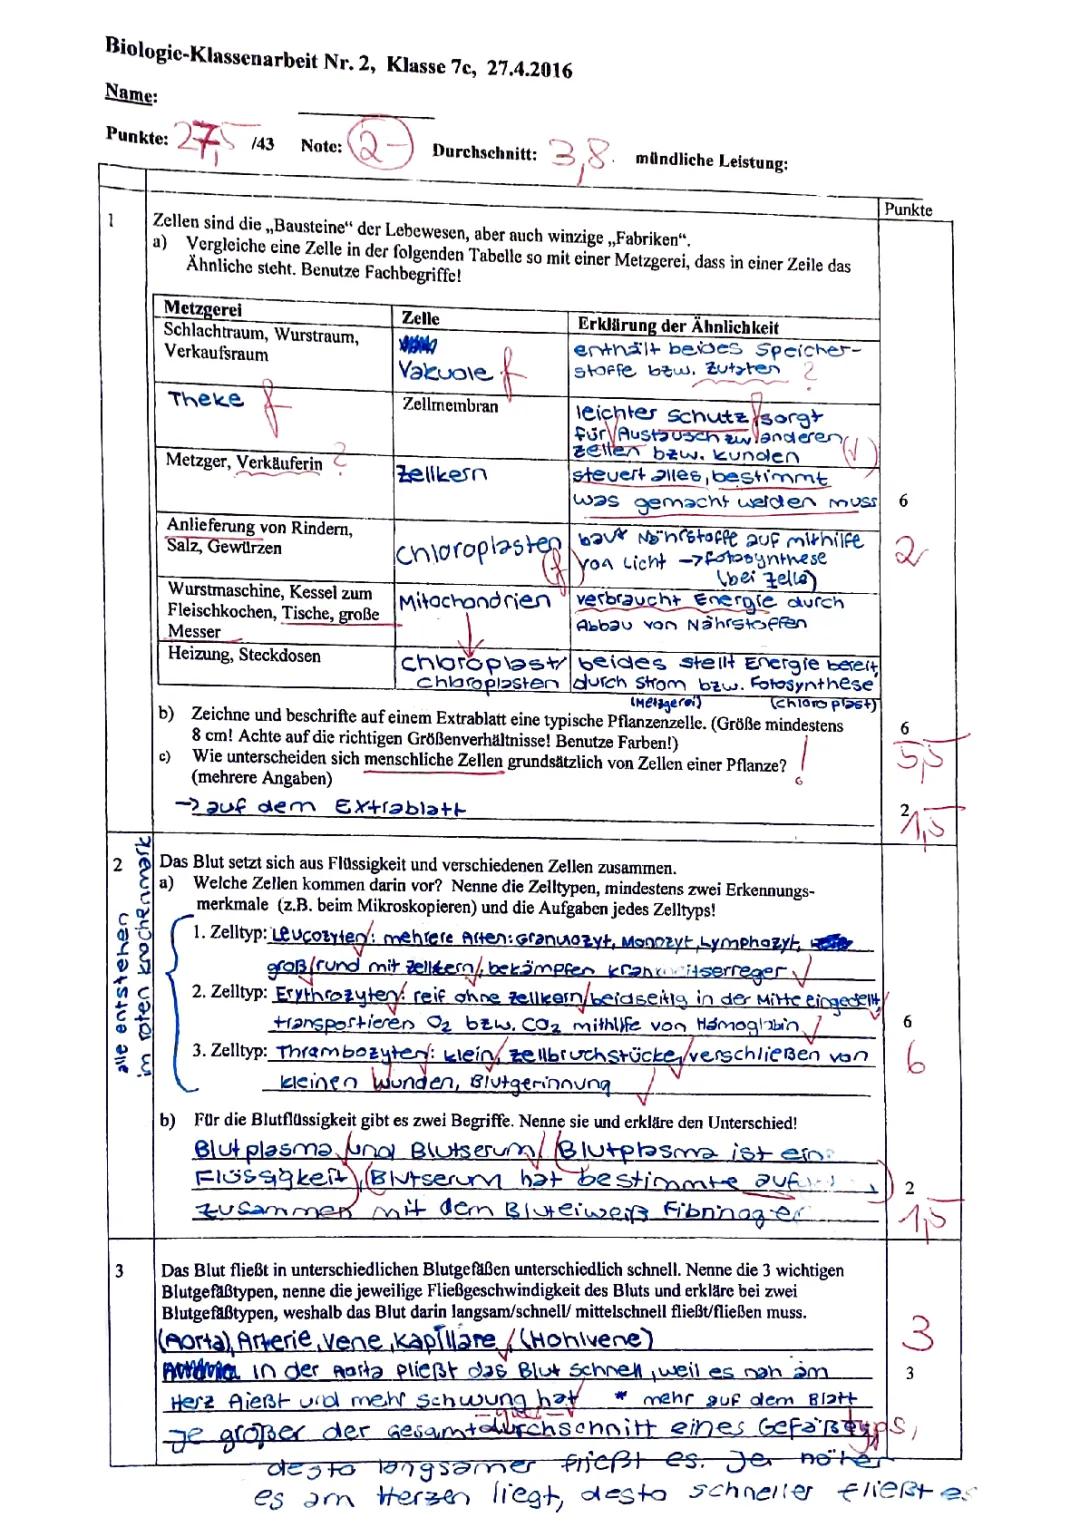 Biologie-Klassenarbeit Nr. 2, Klasse 7c, 27.4.2016
Name:
Punkte: 27,5 /43 Note: 2- Durchschnitt: 3,8 mündliche Leistung:
Punkte
1 Zellen sind die „Bausteine“ der Lebewesen, aber auch winzige „Fabriken“.
a) Vergleiche eine Zelle in der folgenden Tabelle so mit einer Metzgerei, dass in einer Zeile das
Ähnliche steht. Benutze Fachbegriffe!
Metzgerei Zelle Erklärung der Ähnlichkeit
Schlachtraum, Wurstraum, enthält beides Speicher-
Verkaufsraum Vakuole f stoffe bzw. Zutaten ?
Theke f Zellmembran leichter Schutz f sorgt
für Austausch zw. anderen
Zellen bzw. Kunden (√)
Metzger, Verkäuferin ? Zellkern steuert alles, bestimmt
was gemacht werden muss 6
Anlieferung von Rindern, baut Nährstoffe auf mithilfe 2
Salz, Gewürzen Chloroplasten (f) von Licht → Fotosynthese
(bei Zelle)
Wurstmaschine, Kessel zum Mitochondrien verbraucht Energie durch
Fleischkochen, Tische, große Abbau von Nährstoffen
Messer
Heizung, Steckdosen Chloroplast/ beides stellt Energie bereit,
Chloroplasten durch Strom bzw. Fotosynthese
(Metzgerei) (Chloroplast)
b) Zeichne und beschrifte auf einem Extrablatt eine typische Pflanzenzelle. (Größe mindestens 6
8 cm! Achte auf die richtigen Größenverhältnisse! Benutze Farben!) 5,5
c) Wie unterscheiden sich menschliche Zellen grundsätzlich von Zellen einer Pflanze? !
(mehrere Angaben)
→ auf dem Extrablatt 2 1,5
2 Das Blut setzt sich aus Flüssigkeit und verschiedenen Zellen zusammen.
a) Welche Zellen kommen darin vor? Nenne die Zelltypen, mindestens zwei Erkennungs-
merkmale (z.B. beim Mikroskopieren) und die Aufgaben jedes Zelltyps!
alle entstehen
in roten Knochenmark
1. Zelltyp: Leucozyten: mehrere Arten: Granulozyt, Monozyt, Lymphozyt,
groß/rund mit Zellkern, bekämpfen √
2. Zelltyp: Erythrozyten: reif ohne Zellkern/beidseitig in der Mitte eingedellt, 6
transportieren O₂ bzw. CO₂ mithilfe von Hämoglobin √
3. Zelltyp: Thrambozyten: klein, Zellbruchstücke/verschließen von 6
kleinen Wunden, Blutgerinnung √
b) Für die Blutflüssigkeit gibt es zwei Begriffe. Nenne sie und erkläre den Unterschied!
Blutplasma und Blutserum √ (Blutplasma ist ein
Flüssigkeit, (Blutserum hat bestimmte 2
zusammen mit dem Bluteiweiß 1,5
3 Das Blut fließt in unterschiedlichen Blutgefäßen unterschiedlich schnell. Nenne die 3 wichtigen
Blutgefäßtypen, nenne die jeweilige Fließgeschwindigkeit des Bluts und erkläre bei zwei
Blutgefäßtypen, weshalb das Blut darin langsam/schnell/ mittelschnell fließt/fließen muss.
(Aorta), Arterie, Vene, Kapilläre √ (Hohlvene) 3
in der Aorta fließt das Blut schnell, weil es nah am 3
Herz fließt und mehr Schwung hat √ * mehr auf dem Blatt
Je größer der Gesamtdurchschnitt eines Gefäßtyps,
desto langsamer fließt es. Je näher
es am Herzen liegt, desto schneller fließt es